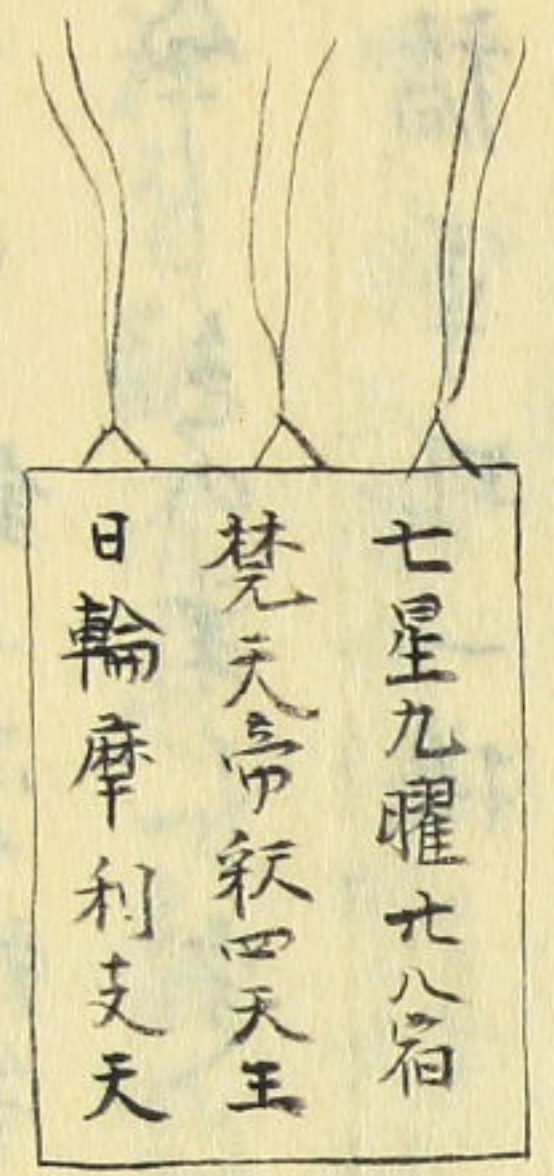 七星九曜廿八宿
梵天帝釈四天王
日輪摩利支天